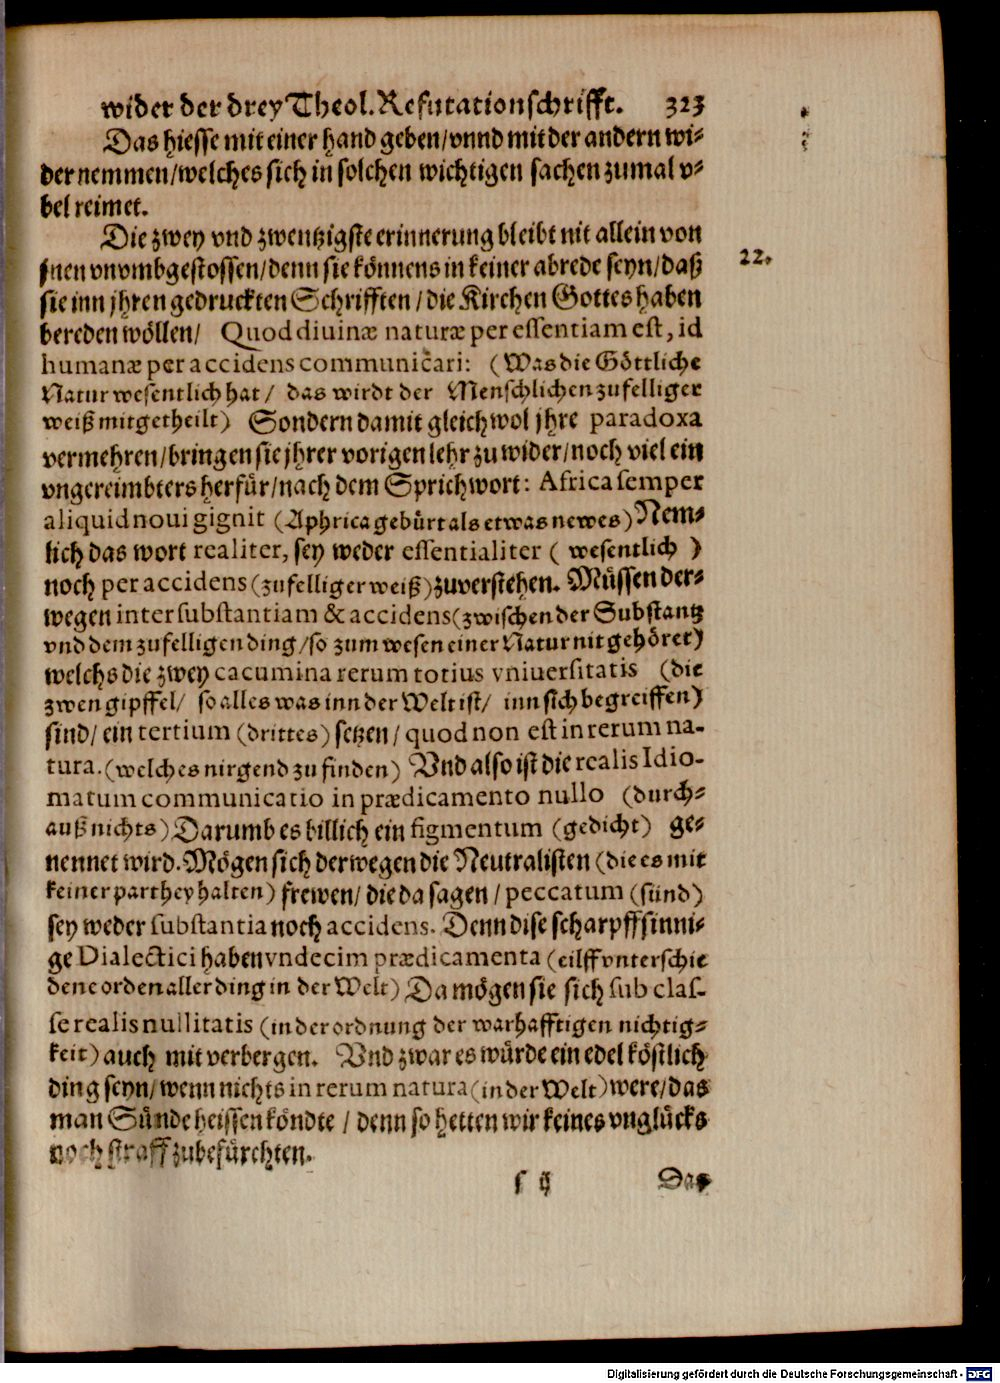 wider der drey Theol. Refutationschrifft. 323
Das hiesse mit einer hand geben/vnnd mit der andern wi⸗
der nemmen/welches sich in solchen wichtigen sachen zumal v⸗
bel reimet.
Die zwey vnd zwentzigste erinnerung bleibt nit allein von
jnen vnvmbgestossen/denn sie könnens in keiner abrede seyn/daß
22.
sie inn jhren gedruckten Schrifften/die Kirchen Gottes haben
bereden wöllen/ Quod diuinæ naturæ per essentiam est, id
humanæ per accidens communicari: (Was die Göttliche
Natur wesentlich hat/ das wirdt der Menschlichen zufelliger
weiß mitgetheilt) Sondern damit gleichwol jhre paradoxa
vermehren/bringen sie jhrer vorigen lehr zu wider/noch viel ein
vngereimbters herfür/nach dem Sprichwort: Africa semper
aliquid noui gignit (Aphrica gebürt als etwas newes) Nem⸗
lich das wort realiter, sey weder essentialiter ( wesentlich )
noch per accidens (zufelliger weiß) zuverstehen. Müssen der⸗
wegen inter substantiam & accidens (zwischen der Substantz
vnd dem zufelligen ding/so zum wesen einer Natur nit gehöret)
welchs die zwey cacumina rerum totius vniuersitatis (die
zwen gipffel/ so alles was inn der Welt ist/ inn sich begreiffen)
sind/ ein tertium (drittes) setzen/ quod non est in rerum na-
tura. (welches nirgend zu finden) Vnd also ist die realis Idio-
matum communicatio in prædicamento nullo (durch⸗
auß nichts) Darumb es billich ein figmentum (gedicht) ge⸗
nennet wird. Mögen sich derwegen die Neutralisten (die es mit
keiner parthey halten) frewen/ die da sagen/ peccatum (sünd)
sey weder substantia noch accidens. Denn dise scharpffsinni⸗
ge Dialectici haben vndecim prædicamenta (eilff vnterschie
dene orden aller ding in der Welt) Da mögen sie sich sub clas-
se realis nullitatis (in der ordnung der warhafftigen nichtig⸗
keit) auch mit verbergen. Vnd zwar es würde ein edel köstlich
ding seyn/ wenn nichts in rerum natura (in der Welt) were/das
man Sünde heissen köndte / denn so hetten wir keines vnglücks
noch straff zubefürchten.
s ij Das
Digitalisierung gefördert durch die Deutsche Forschungsgemeinschaft - DFG